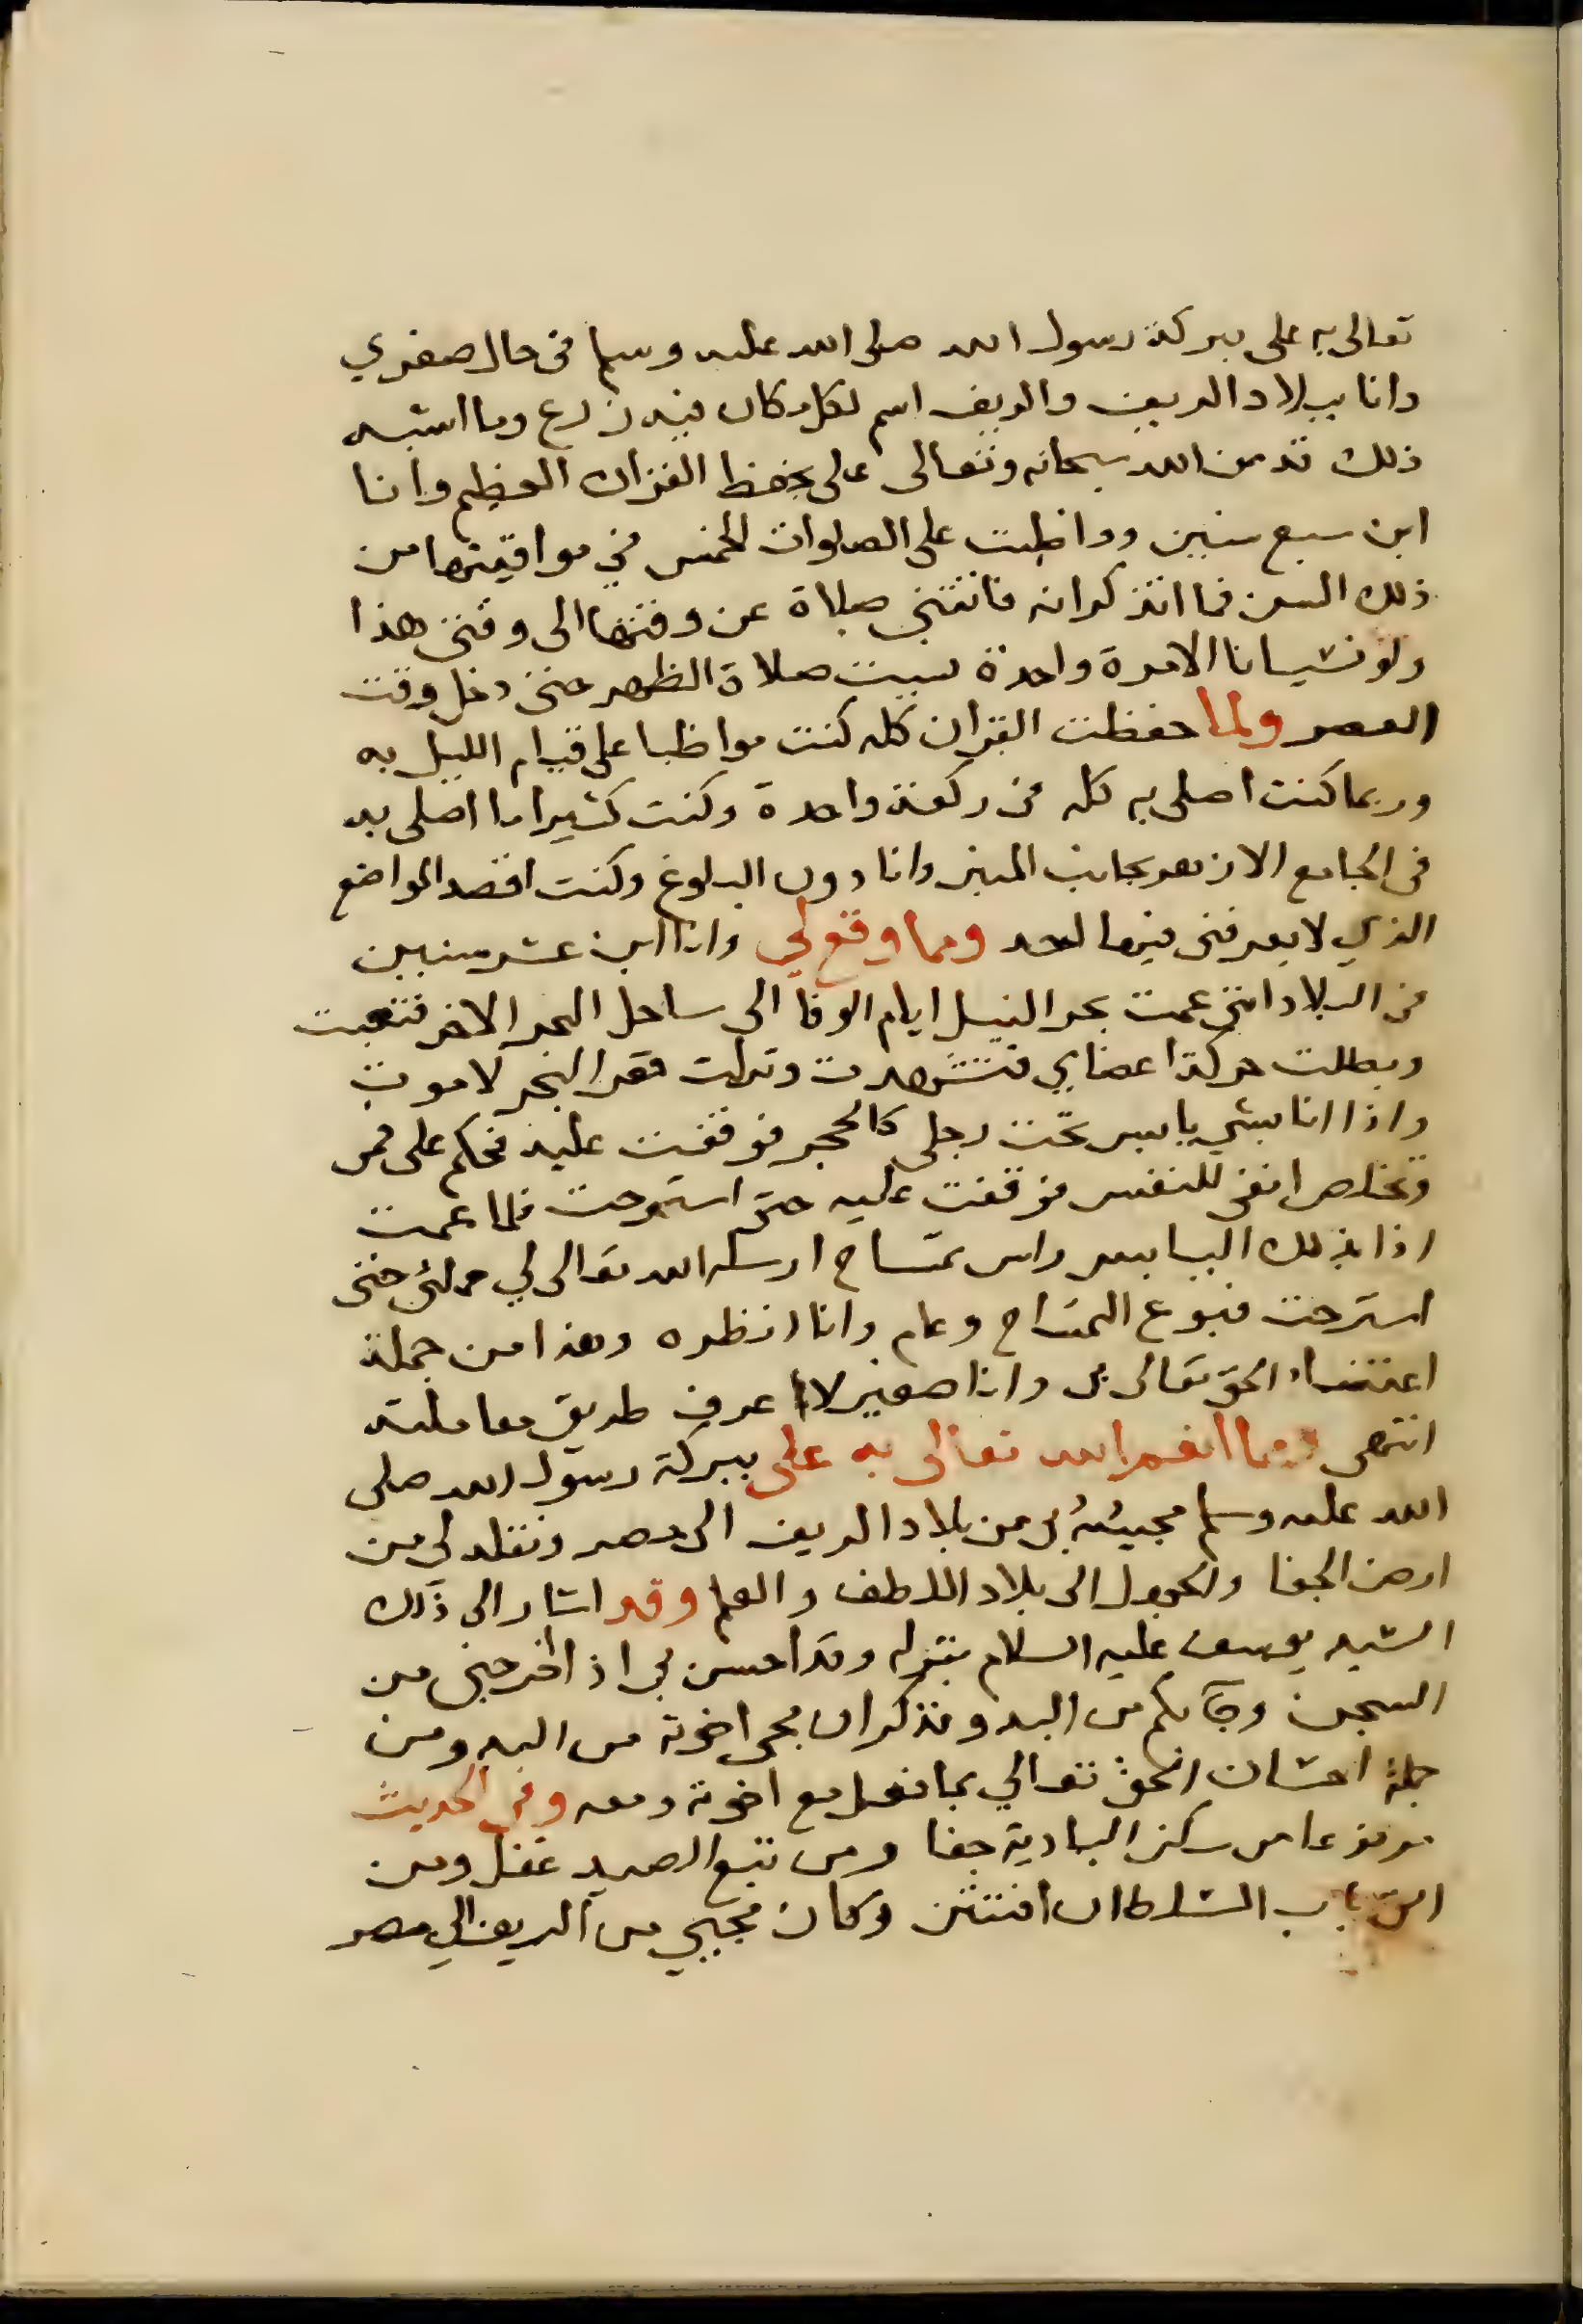 تعالى به على ببركة رسول الله صلى الله عليه وسلم فى حال صغري
وانا ببلاد الريف والريف اسم لكل مكان فيه زرع وما اشبه
ذلك قد من الله سبحانه وتعالى على بحفظ القران العظيم وانا
ابن سبع سنين وواظبت على الصلوات الخمس في مواقيتها من
ذلك السن فما اتذكر انه فاتتنى صلاة عن وقتها الى وقتى هذا
ولو نسيانا الا مرة واحدة نسيت صلاة الظهر حتى دخل وقت
العصر ولما حفظت القران كله كنت مواظبا على قيام الليل به
وربما كنت اصلى به كله فى ركعة واحدة وكنت كثيرا ما اصلى به
فى الجامع الازهر بجانب المنبر وانا دون البلوغ وكنت اقصد المواضع
الذي لا يعرفنى فيها احد ومما وقع لي وانا ابن عشر سنين
فى البلاد اننى عمت بحر النيل ايام الوفا الى ساحل البحر الاخر فتعبت
وبطلت حركة اعضاي فتشهدت ونزلت قعر البحر لاموت
واذا انا بشي يابس تحت رجلى كالحجر فوقفت عليه
انفى للنفس فوقفت عليه حتى استرحت فلما عمت
اذا بذلك اليابس راس تمساح ارسله الله تعالى لي حملنى حتى
استرحت التمساح وعام وانا انظره وهذا من جملة
اعتناء الحق تعالى بى وانا صغير لا اعرف طريق معاملته
انتهى ومما انعم الله تعالى به على ببركة رسول الله صلى
الله عليه وسلم مجيئه بى من بلاد الريف الى مصر ونقله لى من
ارض الجفا والجهل الى بلاد اللطف والعلم وقد اشار الى ذلك
السيد يوسف عليه السلام بقوله وقد احسن بى اذ اخرجنى من
السجن وجآ بكم من البدو فذكر ان مجى اخوته من البدو من
جملة احسان الحق تعالي بما فعل مع اخوته ومعه وفى الحديث
مرفوعا من سكن البادية جفا ومن تتبع الصيد غفل ومن
اتى باب السلطان افتتن وكان مجيي من الريف الي مصر